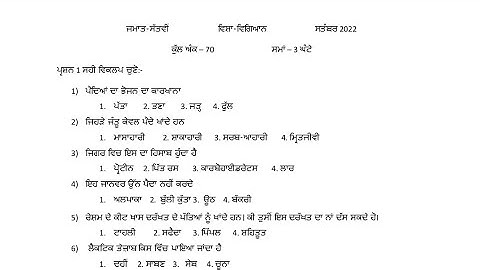 ਜਮਾਤ-ਸੱਤਵੀਂ ਵਿਸ਼ਾ-ਵਿਗਿਆਨ ਸਤੰਬਰ 2022
ਕੁੱਲ ਅੰਕ – 70 ਸਮਾਂ – 3 ਘੰਟੇ
ਪ੍ਰਸ਼ਨ 1 ਸਹੀ ਵਿਕਲਪ ਚੁਣੋ:-
1) ਪੌਦਿਆਂ ਦਾ ਭੋਜਨ ਦਾ ਕਾਰਖਾਨਾ
1. ਪੱਤਾ 2. ਤਣਾ 3. ਜੜ੍ਹ 4. ਫੁੱਲ
2) ਜਿਹੜੇ ਜੰਤੂ ਕੇਵਲ ਪੌਦੇ ਖਾਂਦੇ ਹਨ
1. ਮਾਸਾਹਾਰੀ 2. ਸ਼ਾਕਾਹਾਰੀ 3. ਸਰਬ-ਆਹਾਰੀ 4. ਮ੍ਰਿਤਜੀਵੀ
3) ਜਿਗਰ ਵਿਚ ਇਸ ਦਾ ਹਿਸਾਬ ਹੁੰਦਾ ਹੈ
1. ਪ੍ਰੋਟੀਨ 2. ਪਿੱਤ ਰਸ 3. ਕਾਰਬੋਹਾਈਡਰੇਟਸ 4. ਲਾਰ
4) ਇਹ ਜਾਨਵਰ ਉੱਨ ਪੈਦਾ ਨਹੀਂ ਕਰਦੇ
1. ਅਲਪਾਕਾ 2. ਬੁੱਲੀ ਕੁੱਤਾ 3. ਊਠ 4. ਬੱਕਰੀ
5) ਰੇਸ਼ਮ ਦੇ ਕੀਟ ਖਾਸ ਦਰੱਖਤ ਦੇ ਪੱਤਿਆਂ ਨੂੰ ਖਾਂਦੇ ਹਨ। ਕੀ ਤੁਸੀਂ ਇਸ ਦਰੱਖਤ ਦਾ ਨਾਂ ਦੱਸ ਸਕਦੇ ਹੋ।
1. ਟਾਹਲੀ 2. ਸਫੈਦਾ 3. ਪਿੱਪਲ 4. ਸ਼ਹਿਤੂਤ
6) ਲੈਕਟਿਕ ਤੇਜ਼ਾਬ ਕਿਸ ਵਿੱਚ ਪਾਇਆ ਜਾਂਦਾ ਹੈ
1. ਦਹੀਂ 2. ਸਾਬਣ 3. ਸੇਬ 4. ਚੂਨਾ